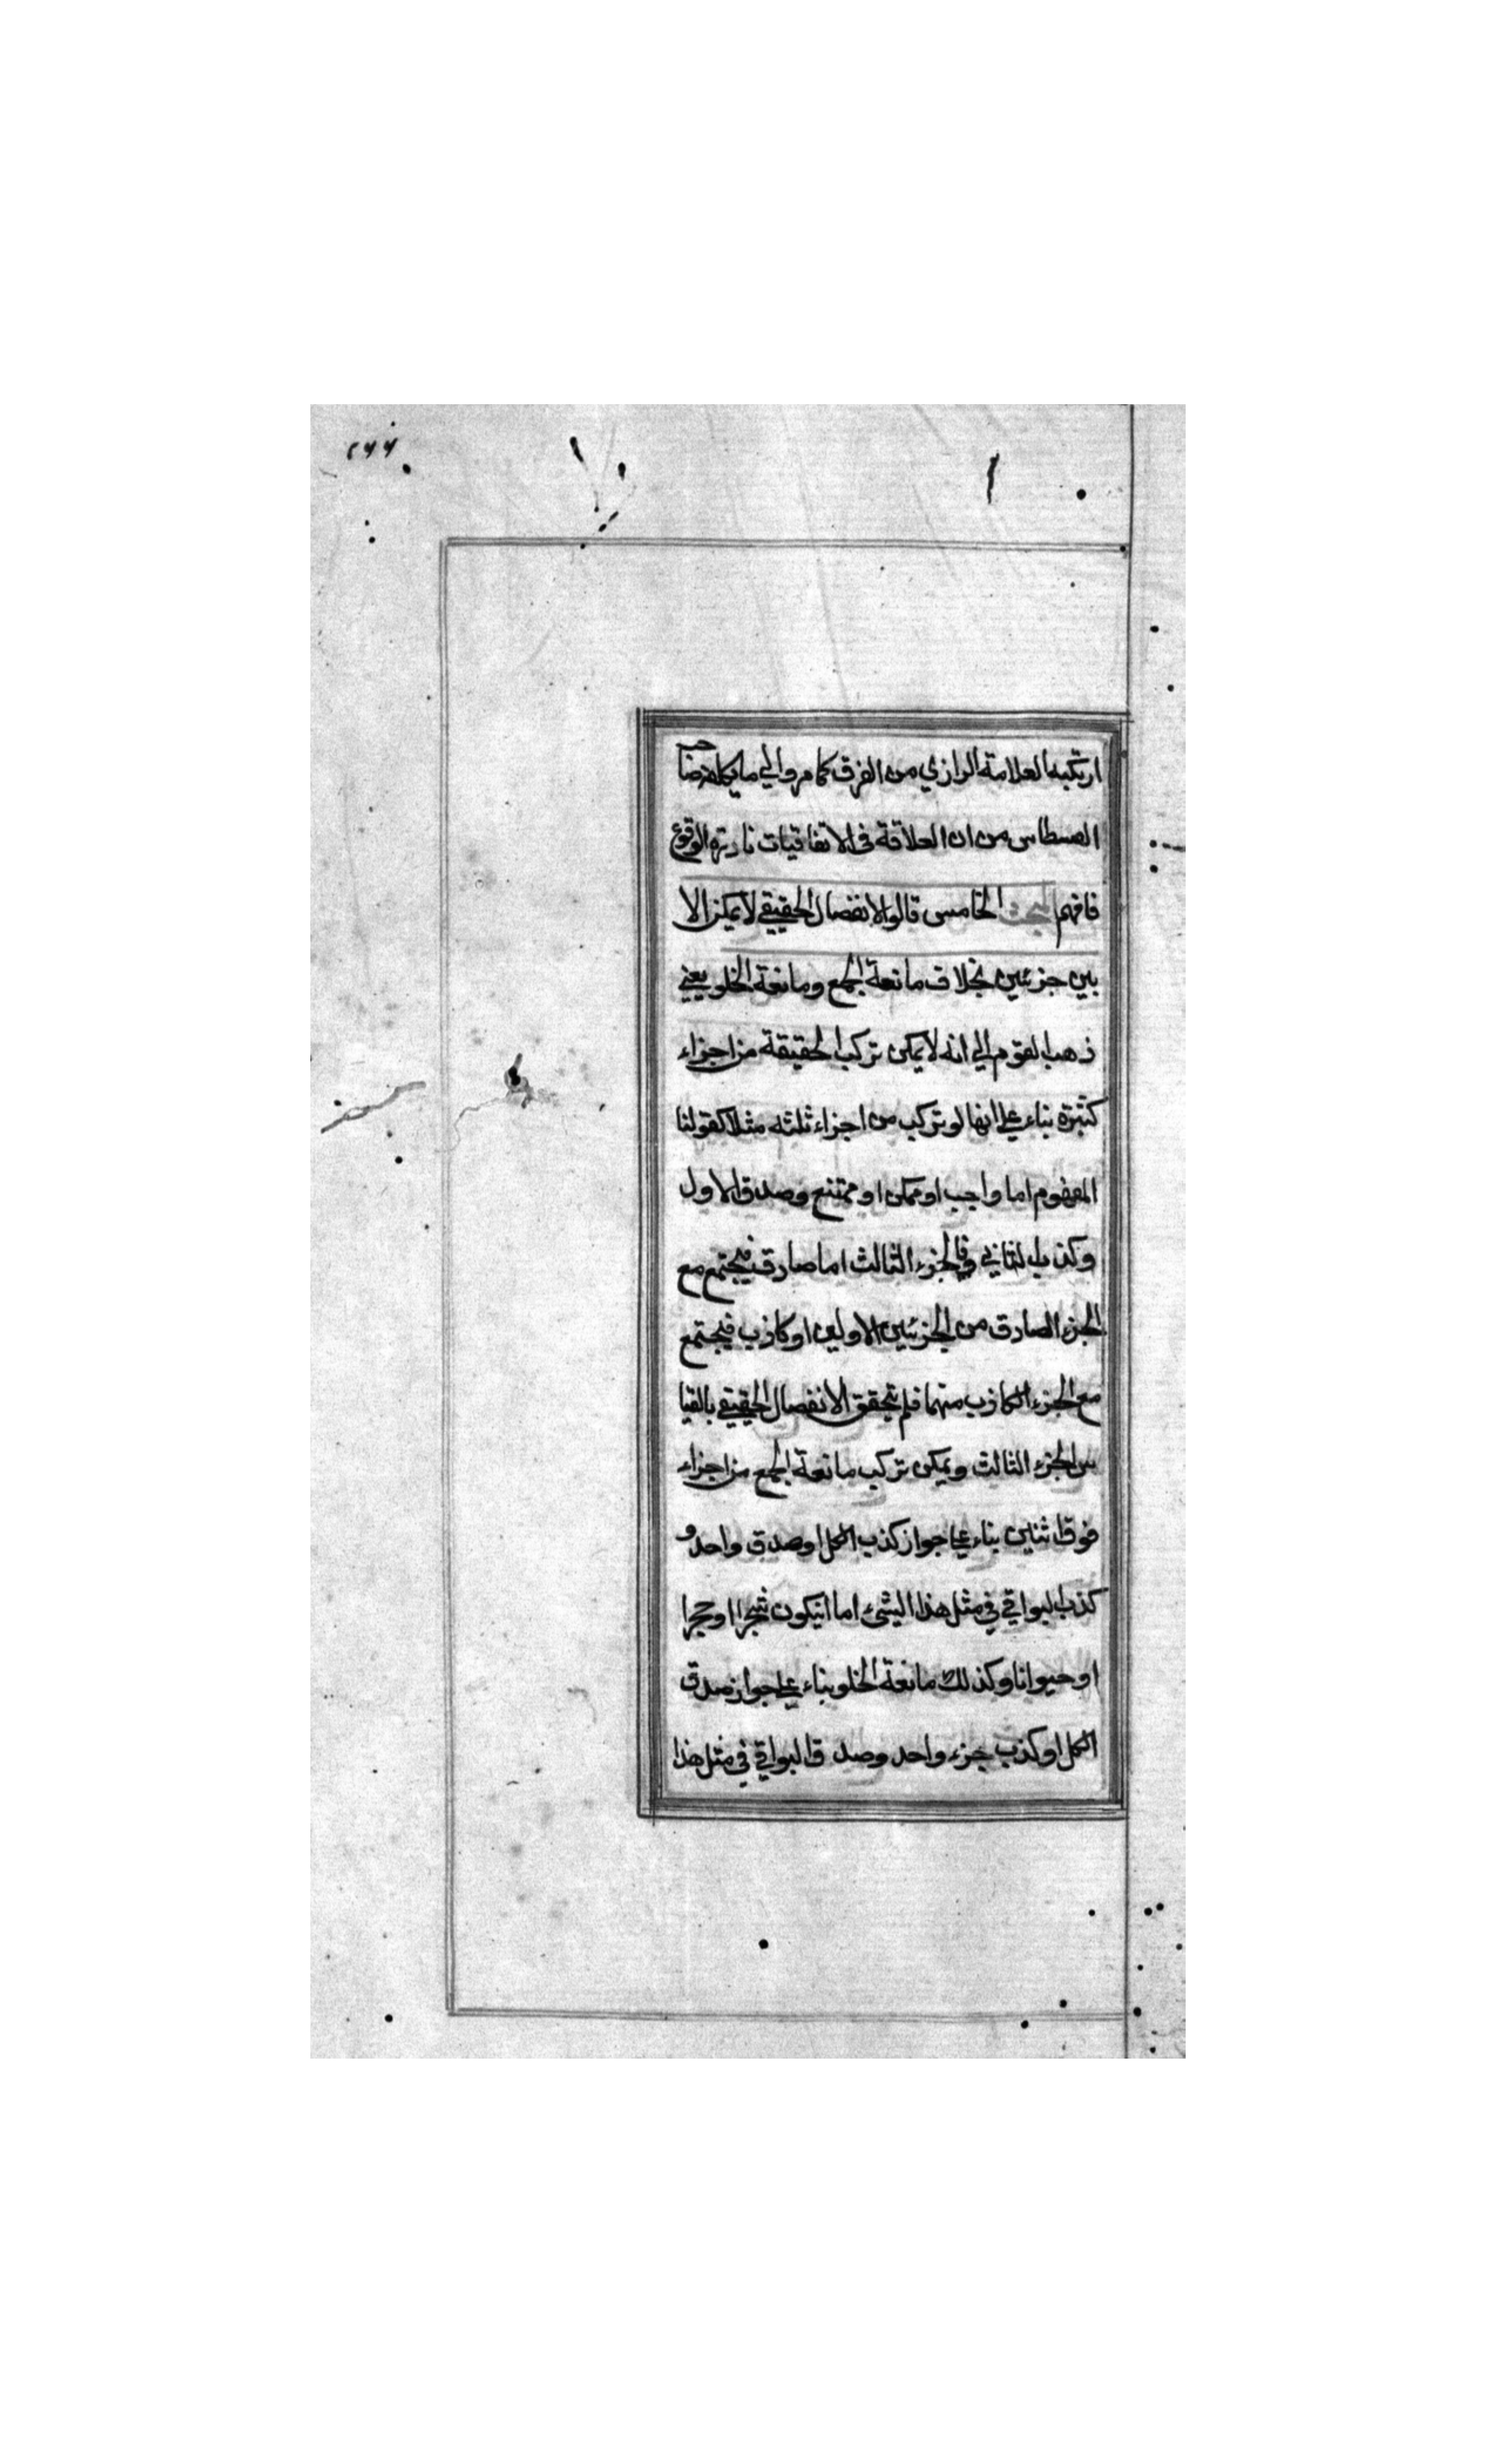 ٢٦٦
ارتكبه العلامة الرازي من الفرق كما مر والى ما
القسطاس من ان العلاقة فى الاتفاقيات نادرة الوقوع
فافهم البحث الخامس قالوا الانفصال الحقيقي لا يمكن الا
بين جزئين بخلاف مانعة الجمع ومانعة الخلو يعني
ذهب القوم الي انه لا يمكن تركب الحقيقة من اجزاء
كثيرة بناء علي انها لو تركب من اجزاء ثلثه مثلا كقولنا
المفهوم اما واجب او ممكن او ممتنع وصدق الاول
وكذب الثاني وفي الجزء الثالث اما صادق فيجتمع مع
الجزء الصادق من الجزئين الاولين او كاذب فيجتمع
مع الجزء الكاذب منهما فلم يتحقق الانفصال الحقيقي بالقيا
س الجزء الثالث ويمكن تركب مانعة الجمع من اجزاء
فوق اثنين بناء علي جواز كذب الكل او صدق واحد و
كذب البواقي في مثل هذا الشيئ اما انيكون شجرا او حجرا
او حيوانا وكذلك مانعة الخلو بناء علي جواز صدق
الكل او كذب جزء واحد وصد ق البواقي في مثل هذا